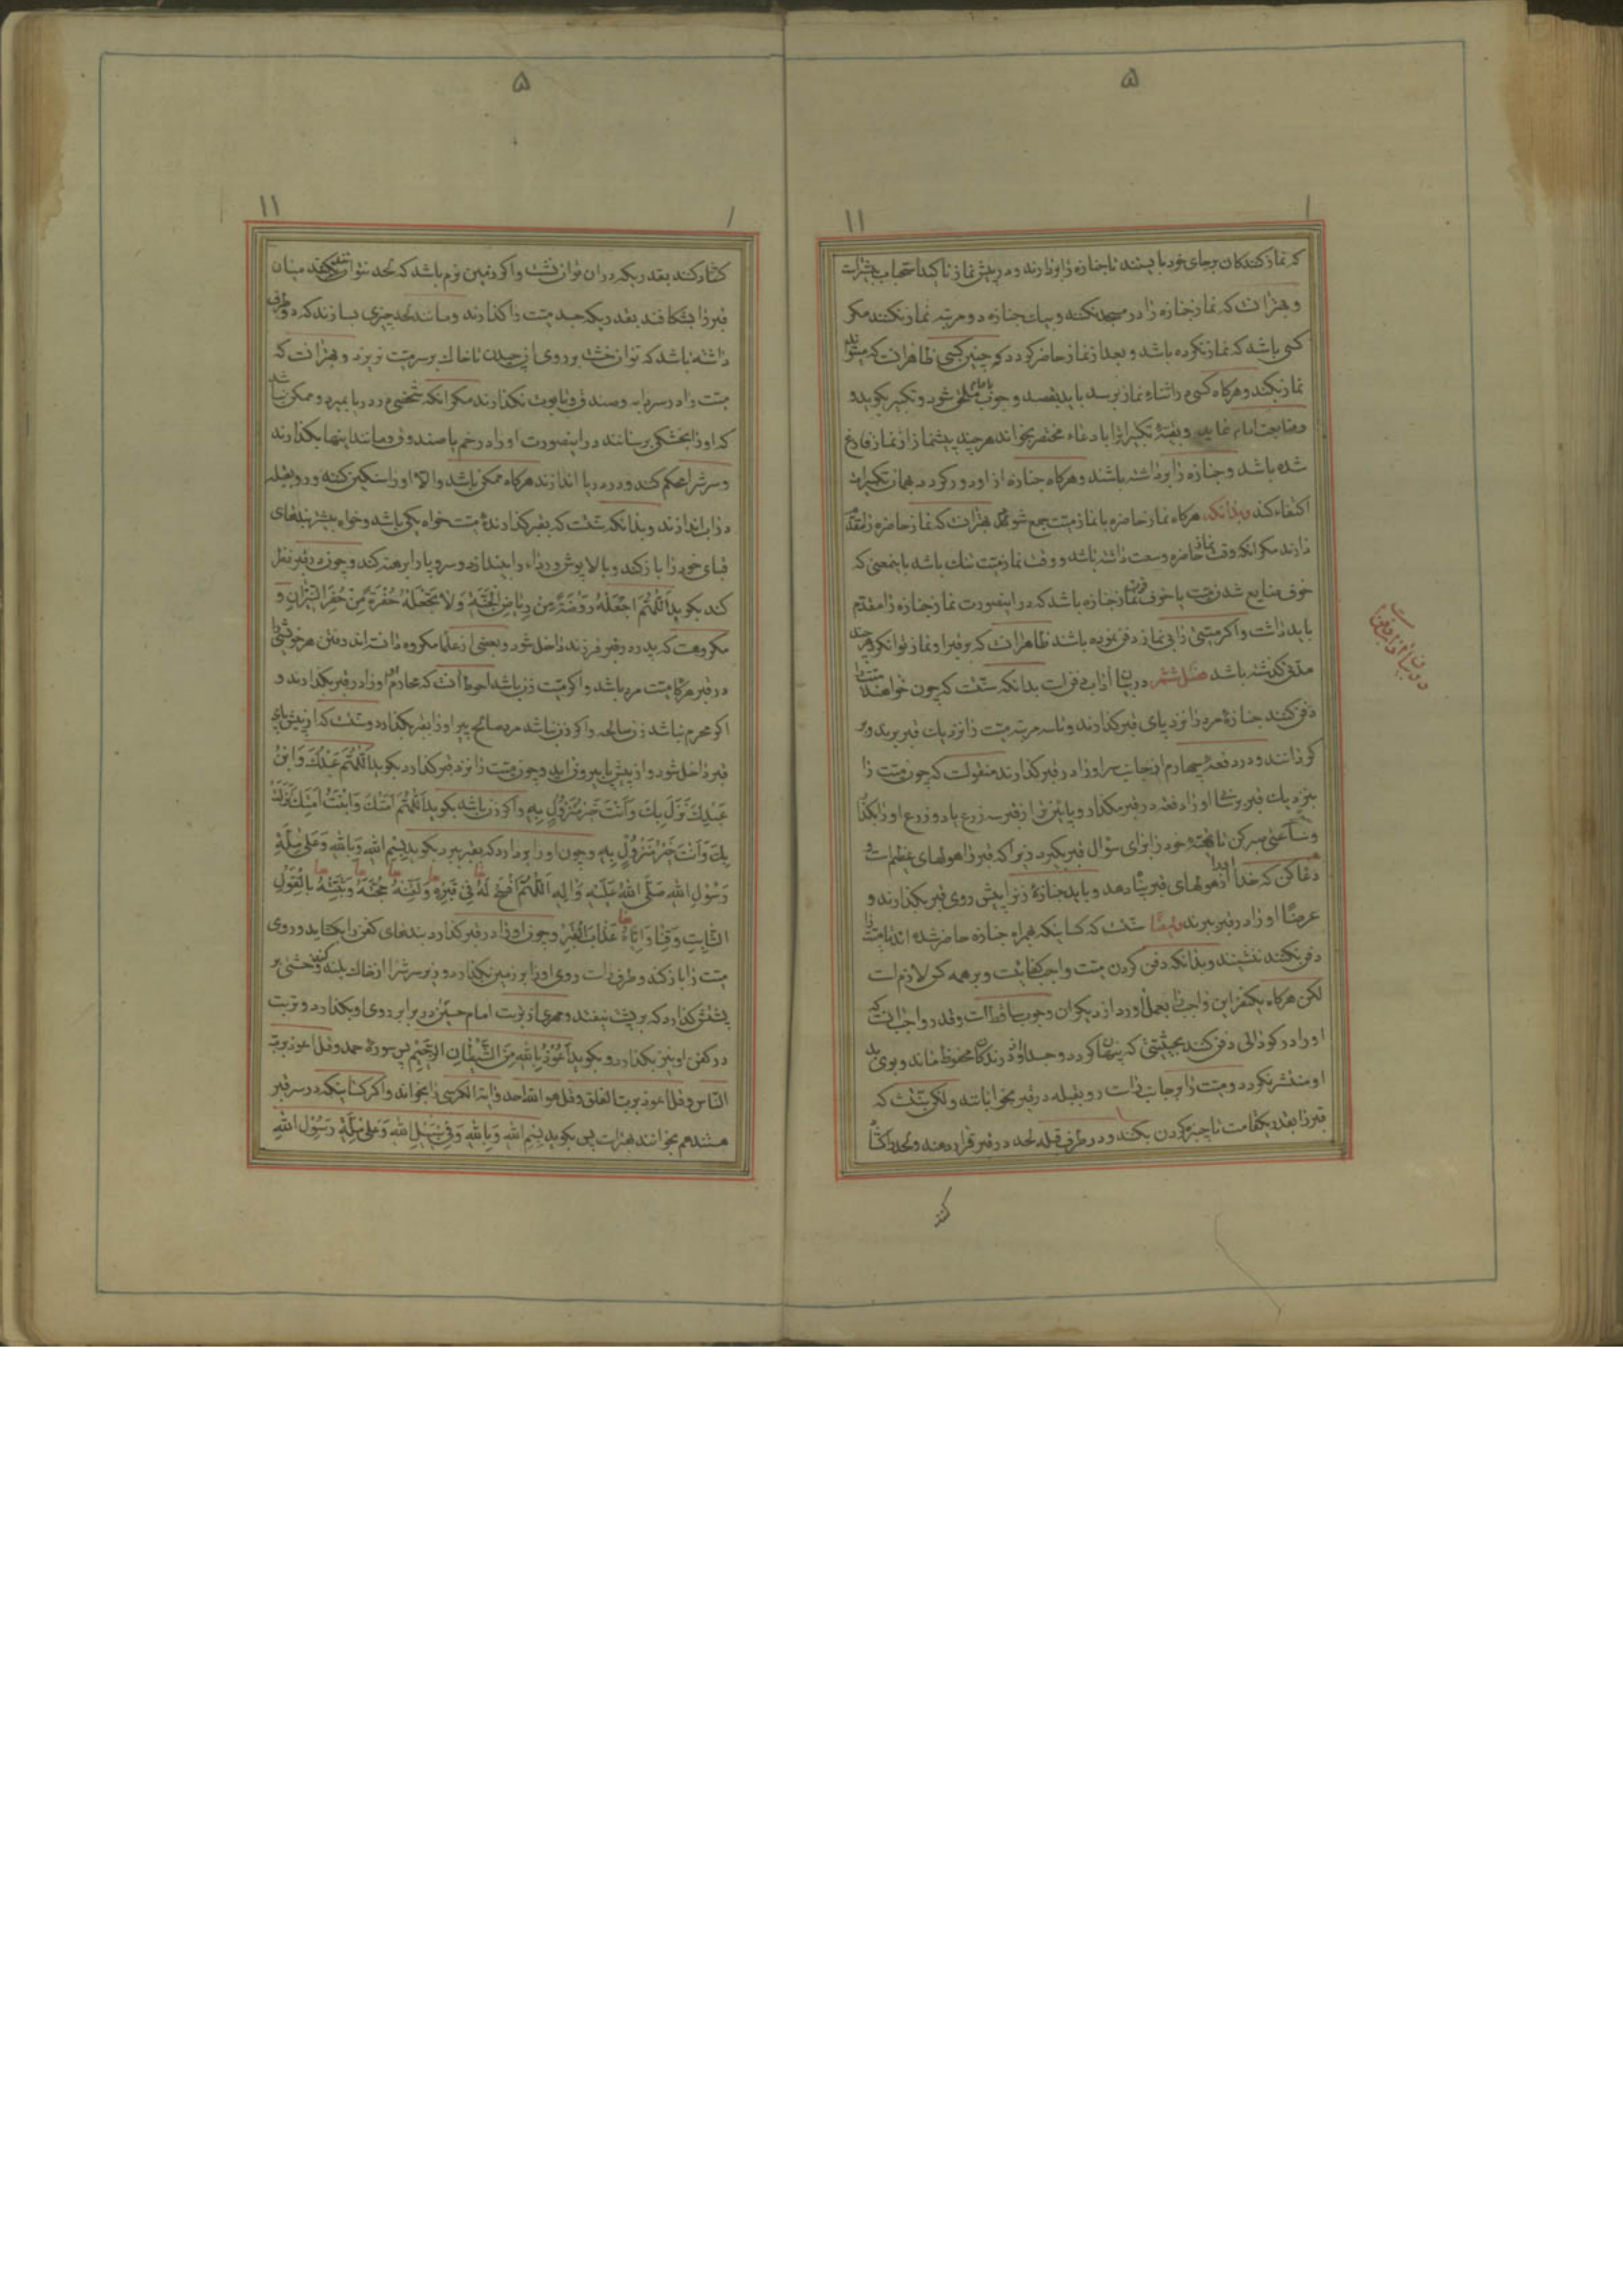 ۵
۱۱
۱
که نماز کنندکان بر جای خود بایستند تا جنازه را بردارند و در پیش نماز تاکید استحباب بیشتر است
و بهتر آنست که نماز جنازه را در مسجد نکنند و بیک جنازه دو مرتبه نماز نکنند مکر
کسی باشد که نماز نکرده باشد و بعد از نماز حاضر کردد که چنین کسی ظاهر آنست که میتواند
نماز بکند و هرکاه کسی در اثناء نماز برسد باید بقصد وجوب بامام ملحق شود و تکبیر بکوید و
متابعت امام نماید و بقیهٔ تکبیر را با دعاء مختصر بخواند هر چند پیشنماز از نماز فارغ
شده باشد و جنازه را برداشته باشند و هرکاه جنازه از او دور کردد بهمان تکبیرات
اکتفاء کند و بدانکه هرکاه نماز حاضره با نماز میت جمع شود بهتر آنست که نماز حاضره را مقدم
دارند مکر آنکه وقت نماز حاضره وسعت داشته باشد و وقت نماز میت تنک باشد باینمعنی که
خوف ضایع شدن میت یا خوف فوت نماز جنازه باشد که در اینصورت نماز جنازه را مقدم
باید داشت و اکر میتی را بی نماز دفن نموده باشند ظاهر آنست که بر قبر او نماز توان کرد هر چند
مدتی کذشته باشد فصل ششم در بیان آداب دفن است بدانکه سنت است که چون خواهند میت را
دفن کنند جنازهٔ مرد را نزد پای قبر کذارند و تا سه مرتبه میت را نزدیک قبر برند و بر
کردانند و در دفعهٔ چهارم از جانب سر او را در قبر کذارند منقولست که چون میت را
بنزدیک قبر برسانی او را دفعة در قبر مکذار و پایین تر از قبر سه ذرع یا دو ذرع او را بکذار
و ساعتی صبر کن تا تهیهٔ خود را برای سؤال قبر بکیرد زیرا که قبر را هولهای عظیم است و
دعا کن که خدا او را از هولهای قبر پناه دهد و باید جنازهٔ زن را پیش روی قبر بکذارند و
عرضا او را در قبر برند و ایضا سنت است که کسانیکه همراه جنازه حاضر شده اند تا میت را
دفن نکنند ننشینند و بدانکه دفن کردن میت واجب کفائیست و بر همه کس لازم است
لکن هرکاه یکنفر این واجب را بعمل آورد از دیکران وجوب ساقط است و قدر واجب آنست که
او را در کودالی دفن کنند بحیثیتی که پنهان کردد و جسد او از درندکان محفوظ ماند و بوی بد
او منتشر نکردد و میت را بر جانب راست رو بقبله در قبر بخوابانند و لکن سنت است که
قبر را بقدر یکقامت تا چنبر کردن بکنند و در طرف قبله لحد در قبر قرار دهند و لحد را کشاده
کنند
۵
۱۱
۱
کشاد کنند بقدریکه در آن توان نشست و اکر زمین نرم باشد که لحد نتوان کند میان
قبر را بشکافند بقدریکه جسد میت را کذارند و مانند لحد چیزی بسازند که دو طرف
داشته باشد که توان خشت بر روی آن چیدن تا خاک بر سر میت نریزد و بهتر آنست که
میت را در سردابه و صندوق و تابوت نکذارند مکر آنکه شخصی در دریا بمیرد و ممکن نباشد
که او را بخشکی برسانند در اینصورت او را در خم یا صندوق و مانند اینها بکذارند
و سرش را محکم کنند و در دریا اندازند هرکاه ممکن باشد و الا او را سنکین کنند و رو بقبله
در آب اندازند و بدانکه سنت است که بقبر کذارندهٔ میت خواه یکی باشد و خواه بیشتر بندهای
قبای خود را باز کند و بالاپوش و رداء را بیندازد و سر و پا را برهنه کند و چون در قبر نظر
کند بکوید اَللّٰهُمَّ اجْعَلْهُ رَوْضَةً مِنْ رِیَاضِ الْجَنَّةِ وَلَا تَجْعَلْهُ حُفْرَةً مِنْ حُفَرِ النّیْرٰانِ و
مکروهست که پدر در قبر فرزند داخل شود و بعضی از علما مکروه دانسته اند دفن هر خویشی را
در قبر هرکاه میت مرد باشد و اکر میت زن باشد احوط آنست که محارم او را در قبر بکذارند و
اکر محرم نباشد زن صالحه و اکر زن نباشد مرد صالح پیر او را بقبر بکذارد و سنت است که از پیش پای
قبر داخل شود و از پیش پا بیرون آید و چون میت را نزد قبر کذارد بکوید اَللّٰهُمَّ عَبْدُكَ وَابْنُ
عَبْدِكَ نَزَلَ بِكَ وَأَنْتَ خَیْرُ مَنْزُولٍ بِهِ و اکر زن باشد بکوید اَللّٰهُمَّ اَمَتُكَ وَابْنَتُ اَمَتِكَ نَزَلَتْ
بِكَ وَأَنْتَ خَیْرُ مَنْزُولٍ بِهِ و چون او را بردارد که بقبر برد بکوید بِسْمِ اللهِ وَبِاللهِ وَعَلیٰ مِلَّةِ
رَسُوْلِ اللهِ صَلَّی اللهُ عَلَیْهِ وَاٰلِهِ اَللّٰهُمَّ افْسَحْ لَهُ فِی قَبْرِهِ وَلَقِّنْهُ حُجَّتَهُ وَثَبِّتْهُ بِالْقَوْلِ
الثَّابِتِ وَقِنَا وَاِیّٰاهُ عَذَابَ الْقَبْرِ و چون او را در قبر کذارد بندهای کفن را بکشاید و روی
میت را باز کند و طرف راست روی او را بر زمین بکذارد و زیر سرش را از خاک بلند کند و خشتی بر
پشتش کذارد که بر پشت نیفتد و مهری از تربت امام حسین در برابر روی او بکذارد و تربت
در کفن او نیز بکذارد و بکوید اَعُوْذُ بِاللهِ مِنَ الشَّیْطٰانِ الرَّجِیْمِ پس سورهٔ حمد و قل اعوذ برب
النّاس و قل اعوذ برب الفلق و قل هو الله احد و آیة الکرسی را بخواند و اکر کسانیکه در سر قبر
هستند هم بخوانند بهتر است پس بکوید بِسْمِ اللهِ وَبِاللهِ وَفِی سَبِیْلِ اللهِ وَعَلیٰ مِلَّةِ رَسُوْلِ اللهِ